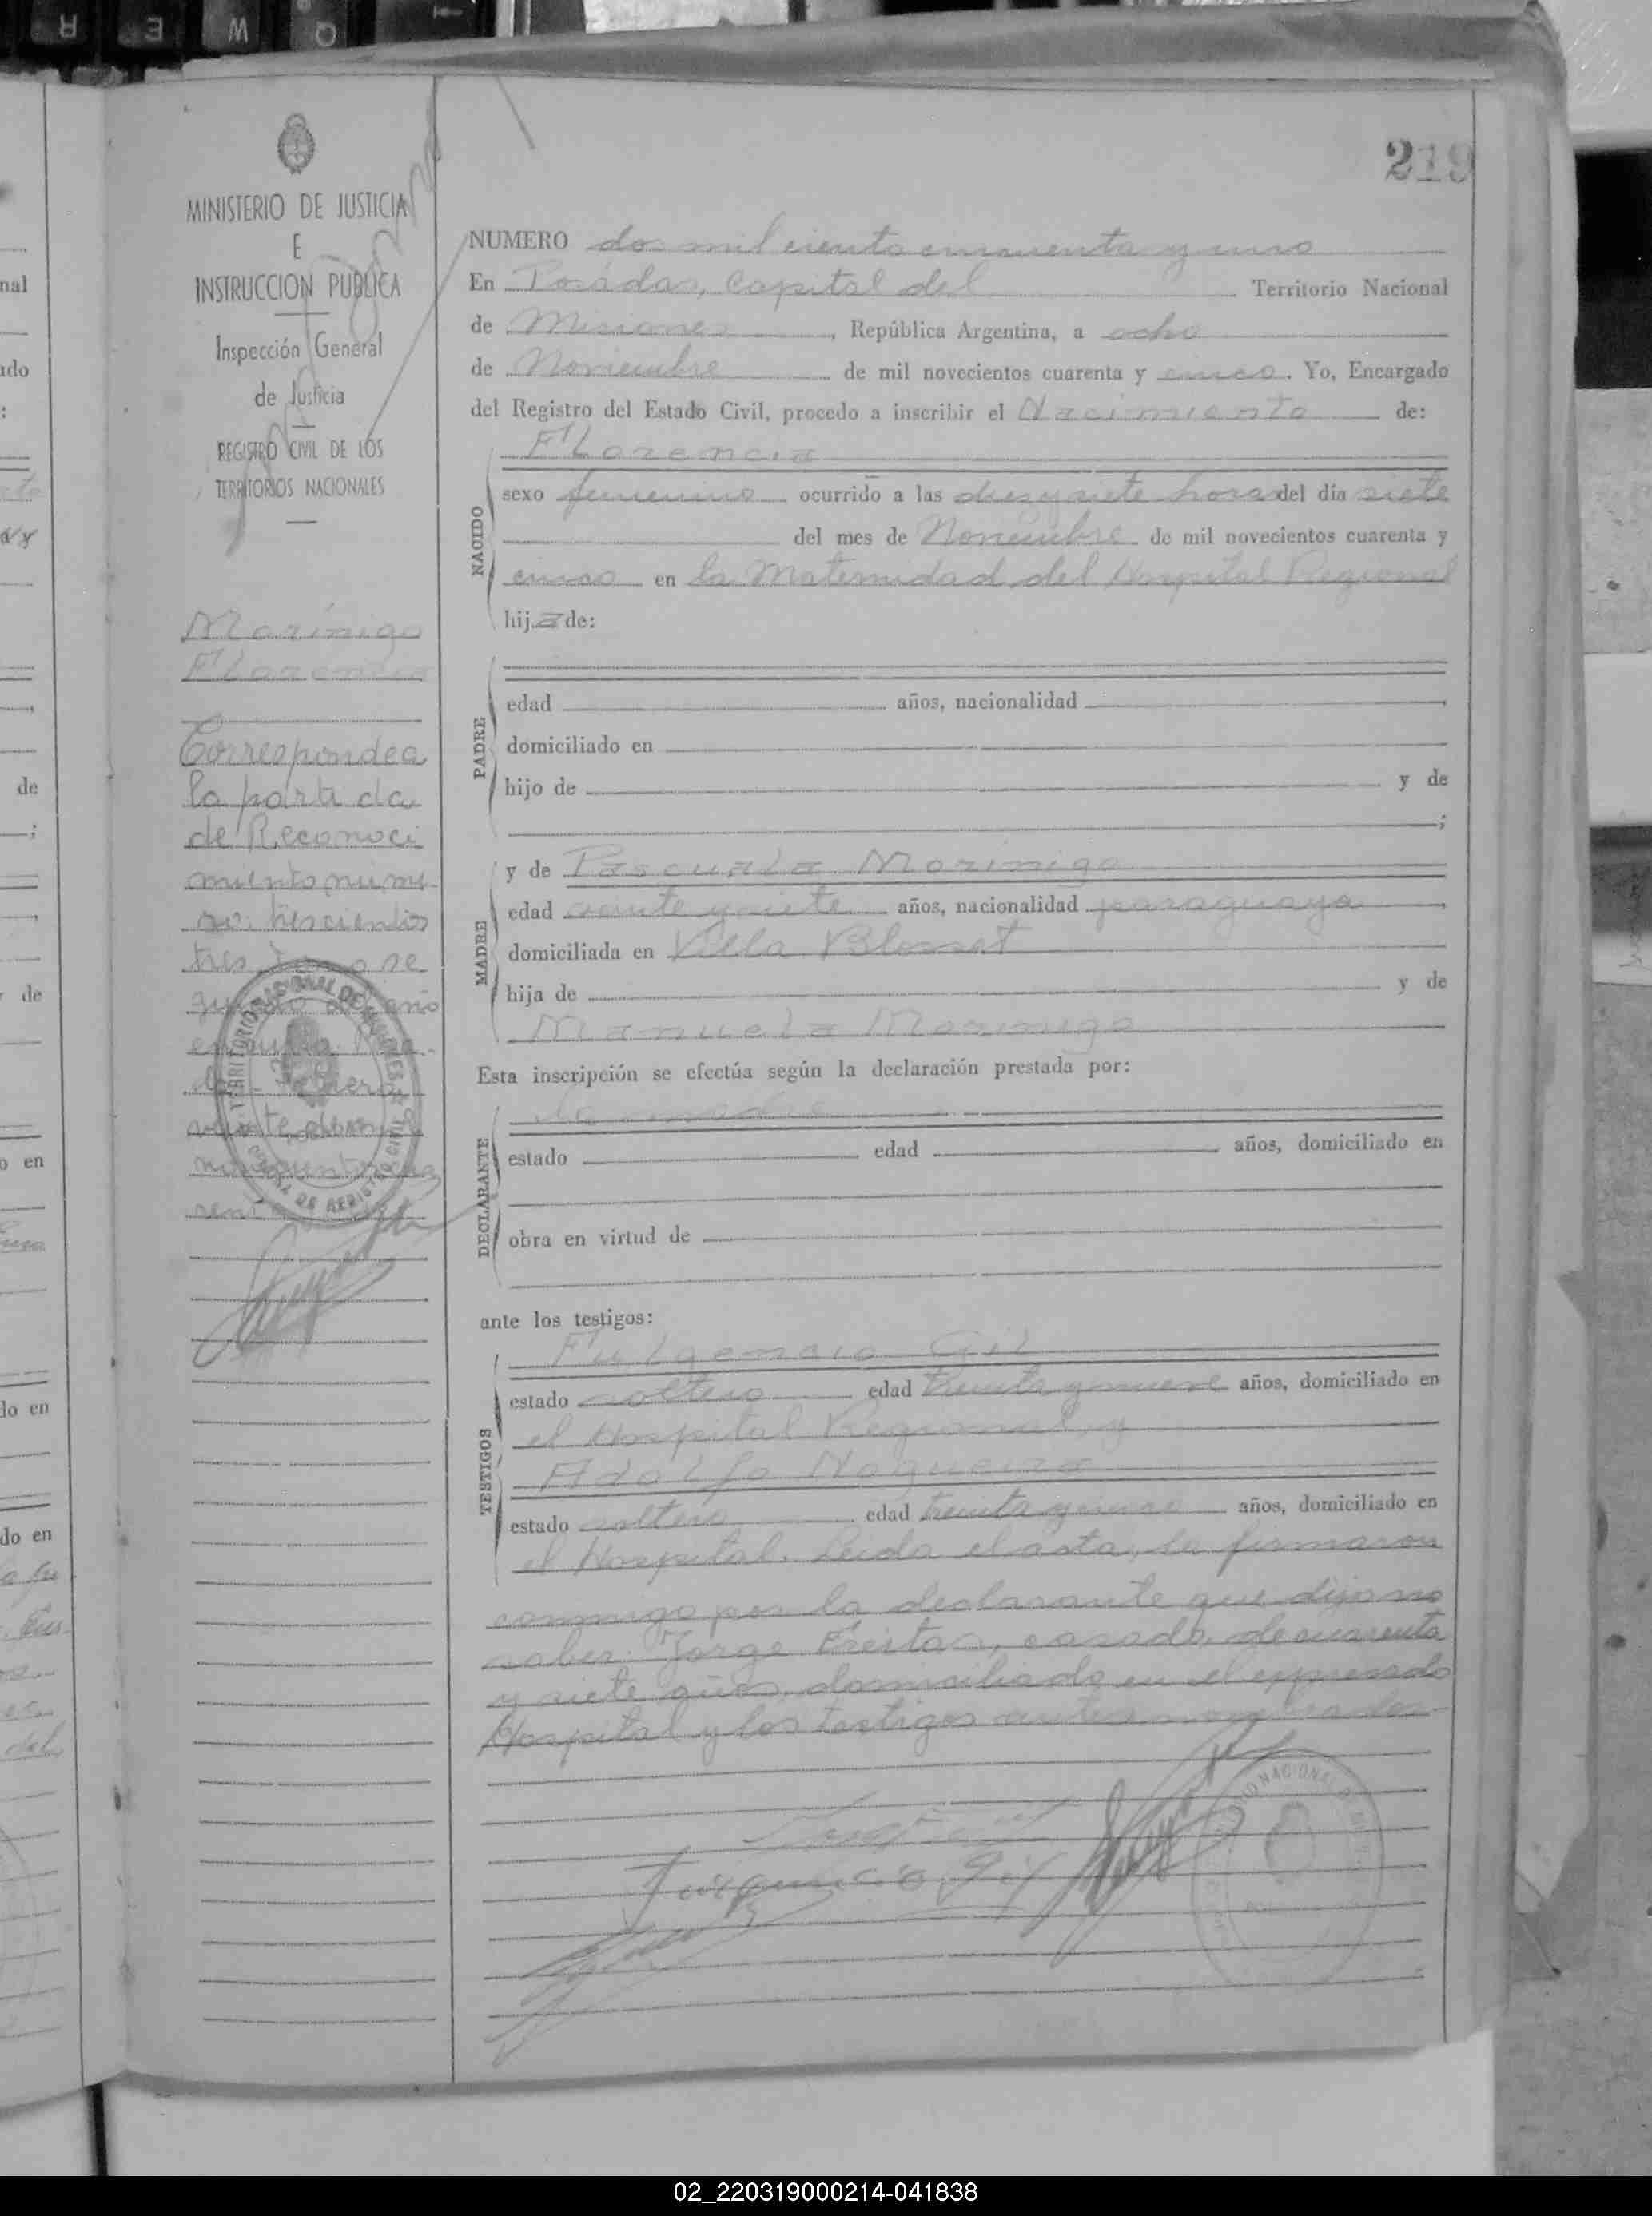 219
MINISTERIO DE JUSTICIA
E
INSTRUCCION PUBLICA
Inspección General
de Justicia
REGISTRO CIVIL DE LOS
TERRITORIOS NACIONALES
Morínigo
Florencia
Corresponde a
la partida
de Reconoci
miento nume-
ro trescientos
tres, se
NUMERO dos mil ciento cincuenta y uno
En Posádas, Capital del Territorio Nacional
de Misiones, República Argentina, a ocho
de Noviembre de mil novecientos cuarenta y cinco. Yo, Encargado
del Registro del Estado Civil, procedo a inscribir el Nacimiento de:
Florencia
NACIDO
sexo femenino ocurrido a las diez y siete horas del día siete
del mes de Noviembre de mil novecientos cuarenta y
cinco en la Maternidad del Hospital Regional
hija de:
PADRE
edad años, nacionalidad
domiciliado en
hijo de y de
;
MADRE
y de Pascuala Morinigo
edad veinte y siete años, nacionalidad paraguaya
domiciliada en Villa Blosset
hija de y de
Manuela Morinigo
Esta inscripción se efectúa según la declaración prestada por:
DECLARANTE
la madre
estado edad años, domiciliado en
obra en virtud de
ante los testigos:
TESTIGOS
Fulgencio Gil
estado soltero edad treinta y nueve años, domiciliado en
el Hospital Regional, y
Adolfo Nogueira
estado soltero edad treinta y uno años, domiciliado en
el Hospital. Leida el acta, la firmaron
conmigo por la declarante que dijo no
saber Jorge Freitas, casado, de cuarenta
y siete años, domiciliado en el expresado
Hospital y los testigos antes nombrados-
Fulgencio Gil
02_220319000214-041838